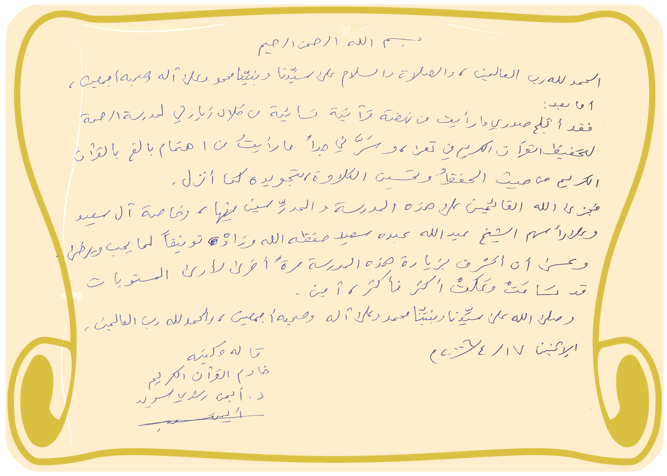 بسم الله الرحمن الرحيم
الحمد لله رب العالمين، والصلاة والسلام على سيّدنا ونبيّنا محمد وعلى آله وصحبه أجمعين،
أما بعد:
فقد أثلج صدري ما رأيت من نهضة قرآنيّة نسائيّة من خلال زيارتي لمدرسة الرحمة
لتحفيظ القرآن الكريم في تعز، وسرّني جداً ما رأيتُ من اهتمام بالغ بالقرآن
الكريم من حيث الحفظُ وتحسين التلاوة، وتجويده كما أنزل.
فجزى الله القائمين على هذه المدرسة والمدرّسين فيها، وخاصة آل سعيد
وعلى رأسهم الشيخ عبد الله عبده سعيد حفظه الله وزاده توفيقاً لما يحب ويرضى.
وعسى أن أتشرف بزيارة هذه المدرسة مرةً أخرى لأرى المستويات
قد تسامتْ وتمكنتْ أكثر فأكثر، آمين.
وصلى الله على سيّدنا ونبيّنا محمد وعلى آله وصحبه أجمعين، والحمد لله رب العالمين.
الاثنين ١٧/٤/٢٠٠٦م
قاله وكتبه
خادم القرآن الكريم
د. أيمن رشدي سويد